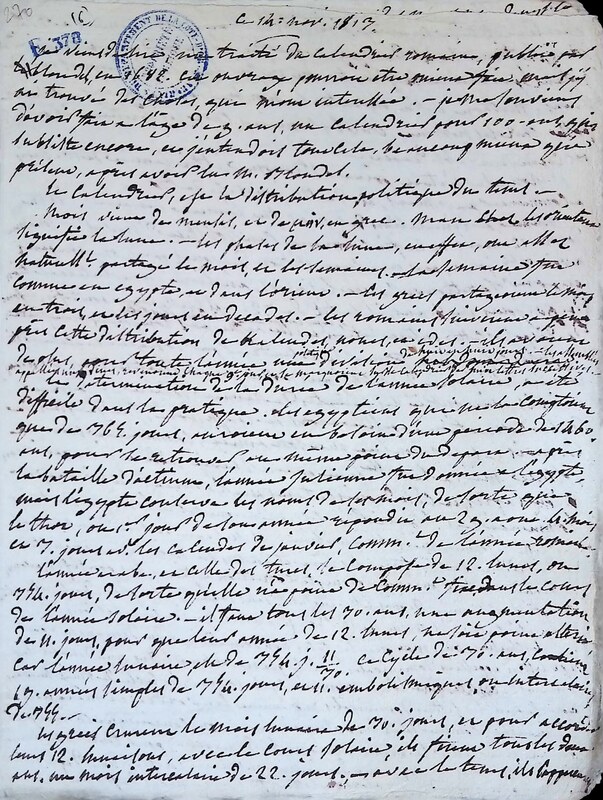 220
1C
ce 14. nov. 1813.
F 378
je viens de lire un traité du calendrier romain, publié par
Blondel, en 1682. Cet ouvrage pourroit être mieux fait, mais j'y
ai trouvé des choses, qui m'ont intéressée. - je me souviens
d'avoir fait a l'age de 9. ans, un calendrier pour 100 ans, qui
subsiste encore, et j'entendois tout cela, beaucoup mieux que
présent, après avoir lu M. Blondel.
Le calendrier, est la distribution politique du tems. -
Mois vient de mensis, et de en grec. les
signifie la lune. - les phases de la lune, en effet, ont assez
naturellt. partagé le mois, et les semaines. - La semaine fut
connue en egypte et dans l'orient. - Les grecs partagoient le mois
en trois, et les jours en décades. - les romains suivirent
cette distribution de Kalendes, nones, et ides. - ils avoient
de plus, pour toute l'année, une division de
La détermination de la durée de l'année solaire, a été
difficile dans la pratique. les egyptiens qui ne la comptoient
que de 365. jours, auroient eu besoin d'une période de 1460
ans, pour se retrouver au même point de départ. - après
la bataille d'actium, l'année julienne fut donnée a l'egypte,
mais l'egypte conserva les noms de ses mois, de sorte que
le thot, ou 1er jour de son année répondit au 29. aout. 4. mois
et 3. jours av. les calendes de janvier, commt. de l'année romaine
L'année arabe, et celle des turcs, se compose de 12. lunes, ou
354. jours, de sorte qu'elle n'a point de commt. fixe dans le cours
de l'année solaire. - il faut tous les 30. ans, une augmentation
de 11. jours, pour que leur année de 12. lunes, ne soit point altérée
car l'année lunaire est de 354. j. 11/30. ce cycle de 30. ans, contient
19. années simples de 354. jours, et 11. embolismiques, ou intercalaires
de 355. -
les grecs crurent le mois lunaire de 30. jours, et pour accorder
leurs 12. lunaisons, avec le cours solaire, ils firent tous les deux
ans, un mois intercalaire de 22. jours. - avec le tems, ils s'apperçurent